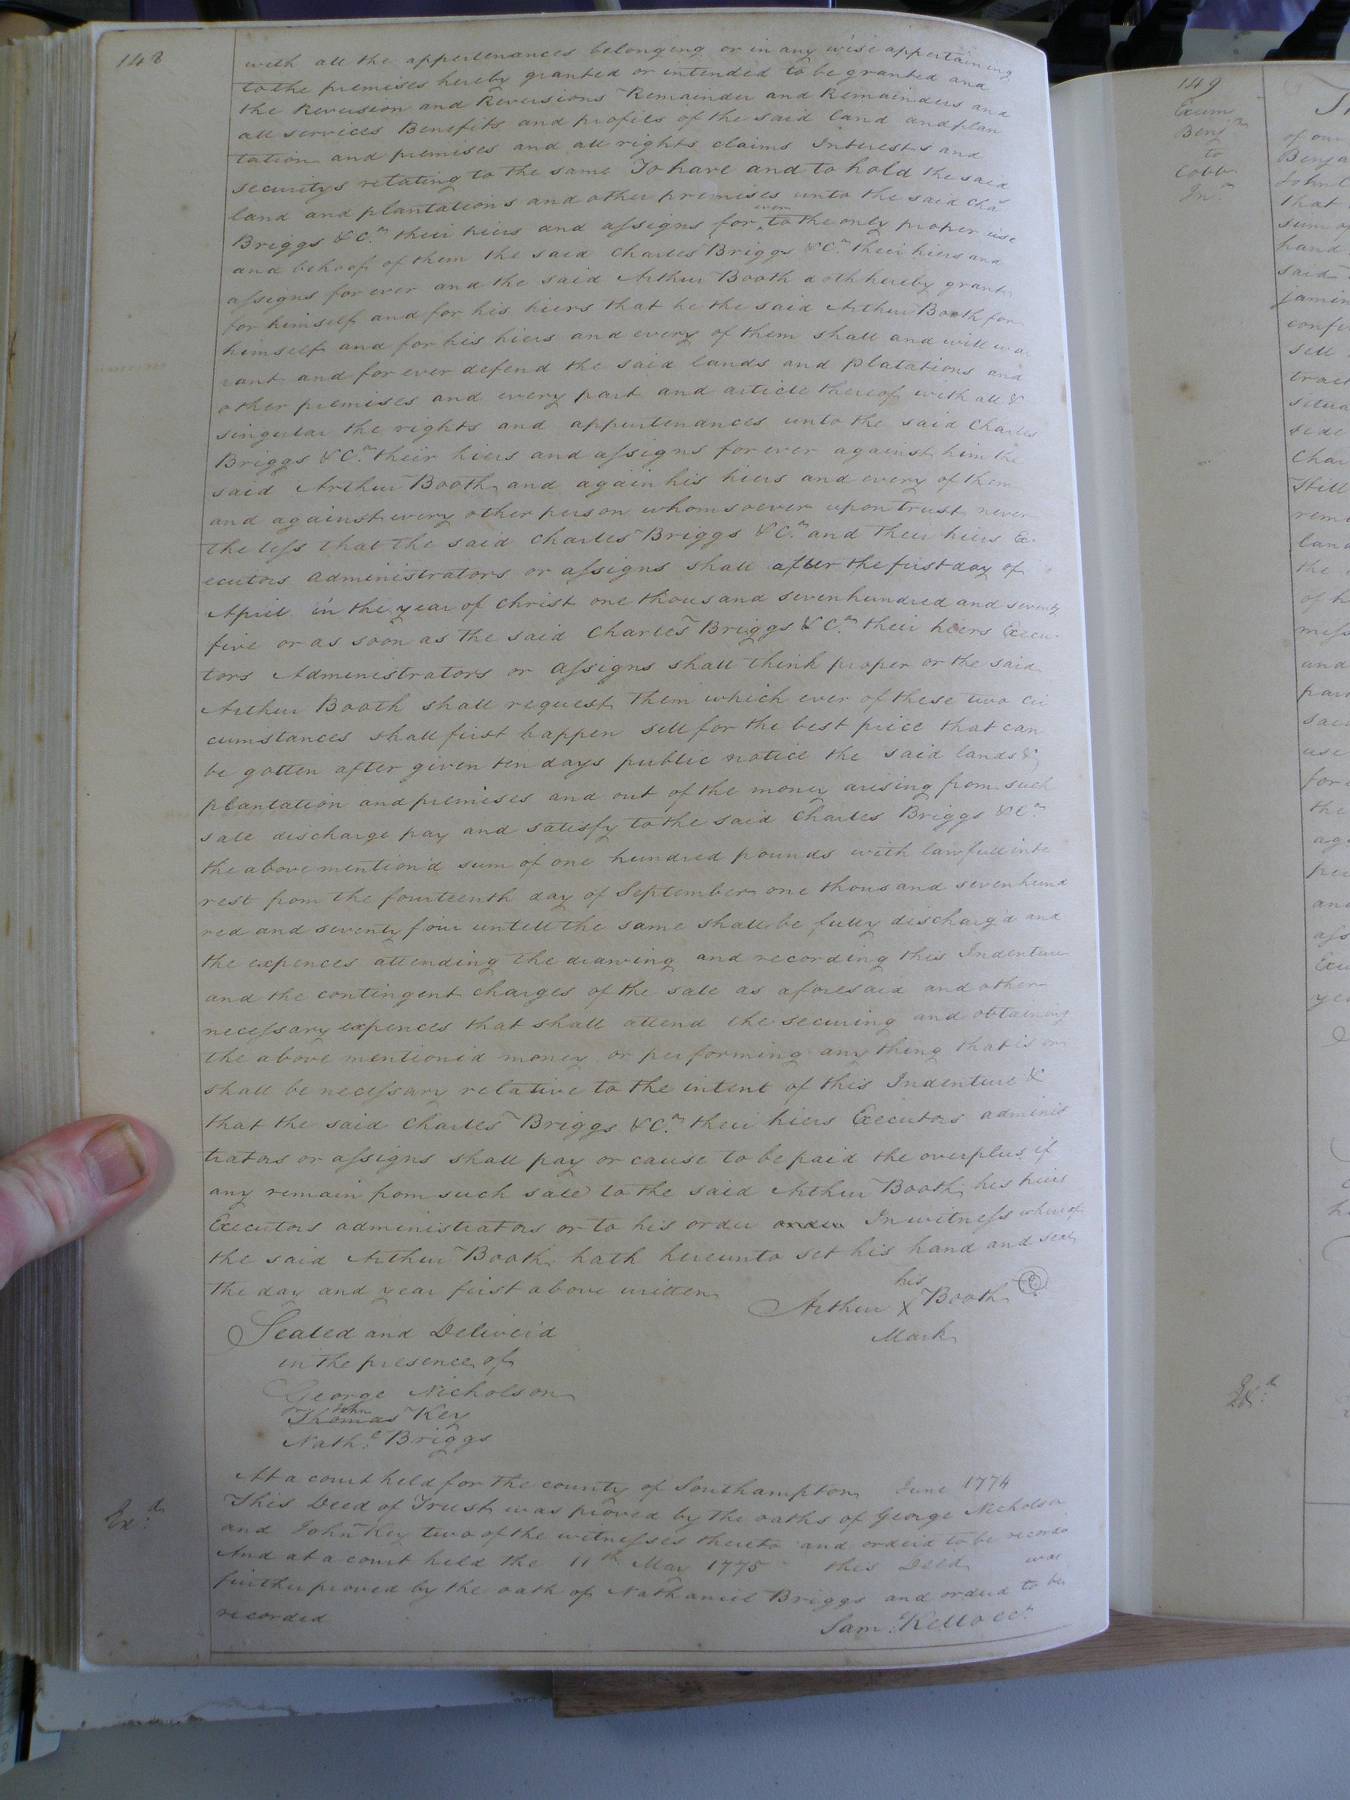 148
with all the appertenances belonging or in any wise appertaining
to the premises hereby granted or intended to be granted and
the Reversion and Reversions Remainder and Remainders and
all services Benefits and profits of the said land and plan
tation and premises and all rights claims Interests and
securitys relating to the same To have and to hold the said
land and plantations and other premises unto the said Cha
Briggs & Co. their hiers and assigns for ever to the only proper use
and behoof of them the said Charles Briggs & Co. their hiers and
assigns for ever and the said Arthur Booth doth hereby grant
for himself and for his hiers that he the said Arthur Booth for
himself and for his hiers and every of them shall and will war
rant and for ever defend the said lands and platations and
other premises and every part and article thereof with all &
singular the rights and appurtenances unto the said Charles
Briggs & Co. their hiers and assigns for ever against him the
said Arthur Booth and again his hiers and every of them
and against every other person whomsoever upon trust never
the less that the said Charles Briggs & Co. and their hiers Ex
ecutors administrators or assigns shall after the first day of
April in the year of Christ one thousand seven hundred and seventy
five or as soon as the said Charles Briggs & Co. their hiers Execu
tors Administrators or assigns shall think proper or the said
Arthur Booth shall request them which ever of these two cir
cumstances shall first happen sell for the best price that can
be gotten after given ten days public notice the said lands &
plantation and premises and out of the money arising from such
sale discharge pay and satisfy to the said Charles Briggs & Co.
the above mention'd sum of one hundred pounds with lawfull inte
rest from the fourteenth day of September one thousand seven hund
red and seventy four untell the same shall be fully discharg'd and
the expences attending the drawing and recording this Indenture
and the contingent charges of the sale as aforesaid and other
necessary expences that shall attend the securing and obtaining
the above mention'd money or performing any thing that is or
shall be necessary relative to the intent of this Indenture &
that the said Charles Briggs & Co. their hiers Executors adminis
trators or assigns shall pay or cause to be paid the overplus if
any remain from such sale to the said Arthur Booth his hiers
Executors administrators or to his order In witness whereof
the said Arthur Booth hath hereunto set his hand and seal
the day and year first above written
his
Arthur X Booth
Mark
Sealed and Deliver'd
in the presence of
George Nicholson
John
Thomas Key
Nath.l Briggs
At a court held for the county of Southampton June 1774
This Deed of Trust was proved by the oaths of George Nicholson
and John Key two of the witnesses thereto and order'd to be recorded
And at a court held the 11th May 1775 this Deed was
further proved by the oath of Nathaniel Briggs and ordered to be
recorded
Sam. Kello CC.
Ex.d
149
Exum
Benj.n
to
Cobb
Jn.o
Ex.d